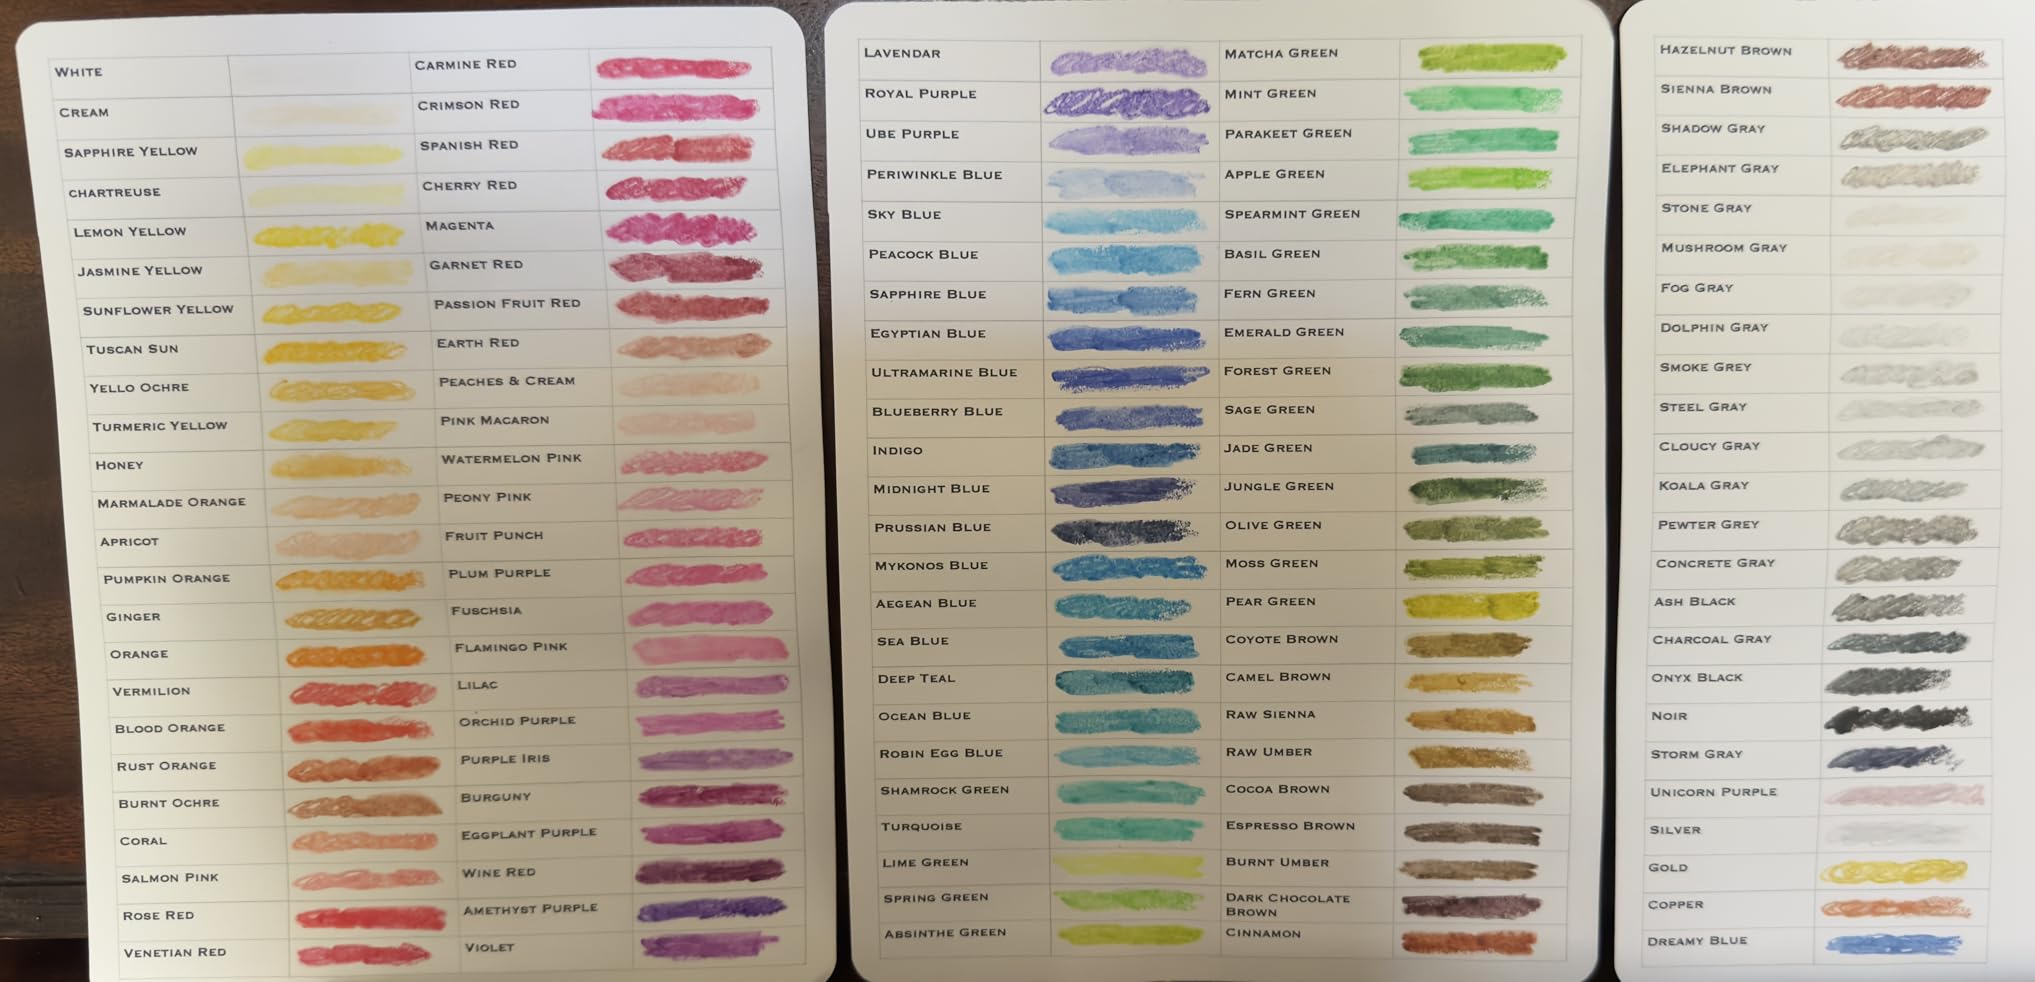 WHITE
CREAM
SAPPHIRE YELLOW
CHARTREUSE
LEMON YELLOW
JASMINE YELLOW
SUNFLOWER YELLOW
TUSCAN SUN
YELLO OCHRE
TURMERIC YELLOW
HONEY
MARMALADE ORANGE
APRICOT
PUMPKIN ORANGE
GINGER
ORANGE
VERMILION
BLOOD ORANGE
RUST ORANGE
BURNT OCHRE
CORAL
SALMON PINK
ROSE RED
VENETIAN RED
CARMINE RED
CRIMSON RED
SPANISH RED
CHERRY RED
MAGENTA
GARNET RED
PASSION FRUIT RED
EARTH RED
PEACHES & CREAM
PINK MACARON
WATERMELON PINK
PEONY PINK
FRUIT PUNCH
PLUM PURPLE
FUSCHSIA
FLAMINGO PINK
LILAC
ORCHID PURPLE
PURPLE IRIS
BURGUNY
EGGPLANT PURPLE
WINE RED
AMETHYST PURPLE
VIOLET
LAVENDAR
ROYAL PURPLE
UBE PURPLE
PERIWINKLE BLUE
SKY BLUE
PEACOCK BLUE
SAPPHIRE BLUE
EGYPTIAN BLUE
ULTRAMARINE BLUE
BLUEBERRY BLUE
INDIGO
MIDNIGHT BLUE
PRUSSIAN BLUE
MYKONOS BLUE
AEGEAN BLUE
SEA BLUE
DEEP TEAL
OCEAN BLUE
ROBIN EGG BLUE
SHAMROCK GREEN
TURQUOISE
LIME GREEN
SPRING GREEN
ABSINTHE GREEN
MATCHA GREEN
MINT GREEN
PARAKEET GREEN
APPLE GREEN
SPEARMINT GREEN
BASIL GREEN
FERN GREEN
EMERALD GREEN
FOREST GREEN
SAGE GREEN
JADE GREEN
JUNGLE GREEN
OLIVE GREEN
MOSS GREEN
PEAR GREEN
COYOTE BROWN
CAMEL BROWN
RAW SIENNA
RAW UMBER
COCOA BROWN
ESPRESSO BROWN
BURNT UMBER
DARK CHOCOLATE
BROWN
CINNAMON
HAZELNUT BROWN
SIENNA BROWN
SHADOW GRAY
ELEPHANT GRAY
STONE GRAY
MUSHROOM GRAY
FOG GRAY
DOLPHIN GRAY
SMOKE GREY
STEEL GRAY
CLOUCY GRAY
KOALA GRAY
PEWTER GREY
CONCRETE GRAY
ASH BLACK
CHARCOAL GRAY
ONYX BLACK
NOIR
STORM GRAY
UNICORN PURPLE
SILVER
GOLD
COPPER
DREAMY BLUE